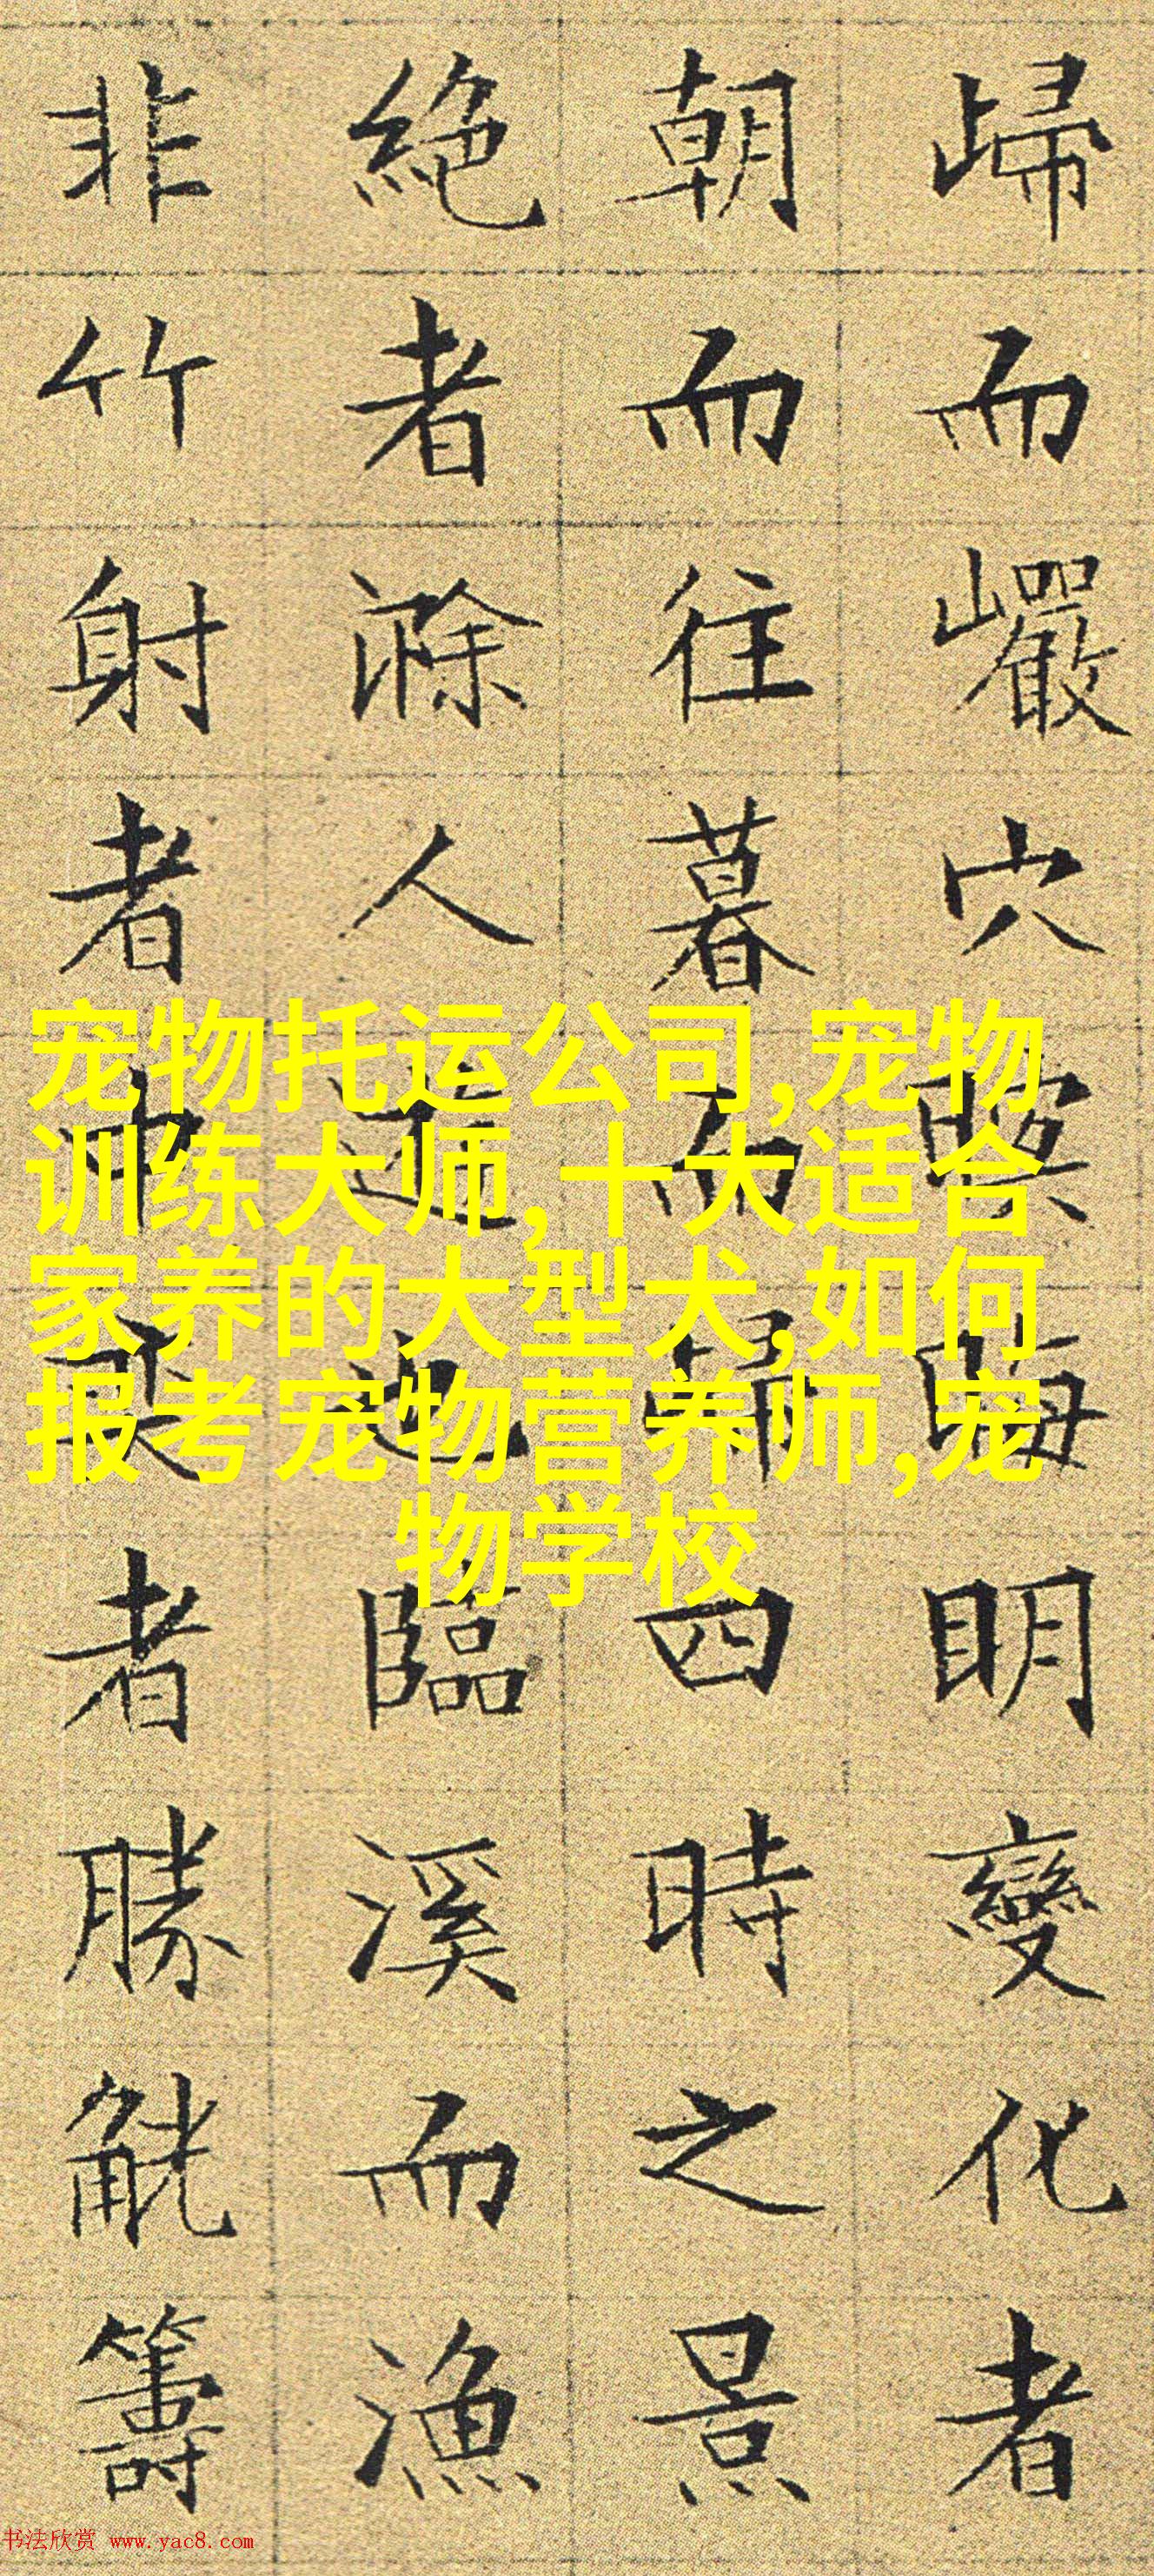 歸而巖穴暝晦明變化者
朝而往暮而歸四時之景
絕者滁人遊也臨溪而漁
非竹射者中者勝觥籌
宠物托运公司,宠物
训练大师,十大适合
家养的大型犬,如何
报考宠物营养师,宠
物学校
书法欣赏 www.yac8.com